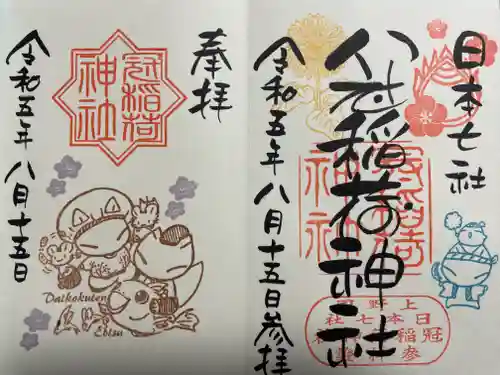 日本七社
冠稲荷神社
令和五年八月十五日参拝
冠稲荷
神社
上野国
日本七社
奉拝
冠稲荷
神社
令和五年 八月十五日
Daikokuten
Ebisu